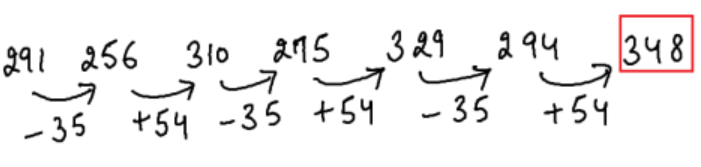 291 256 310 275 329 294 348
-35 +54 -35 +54 -35 +54